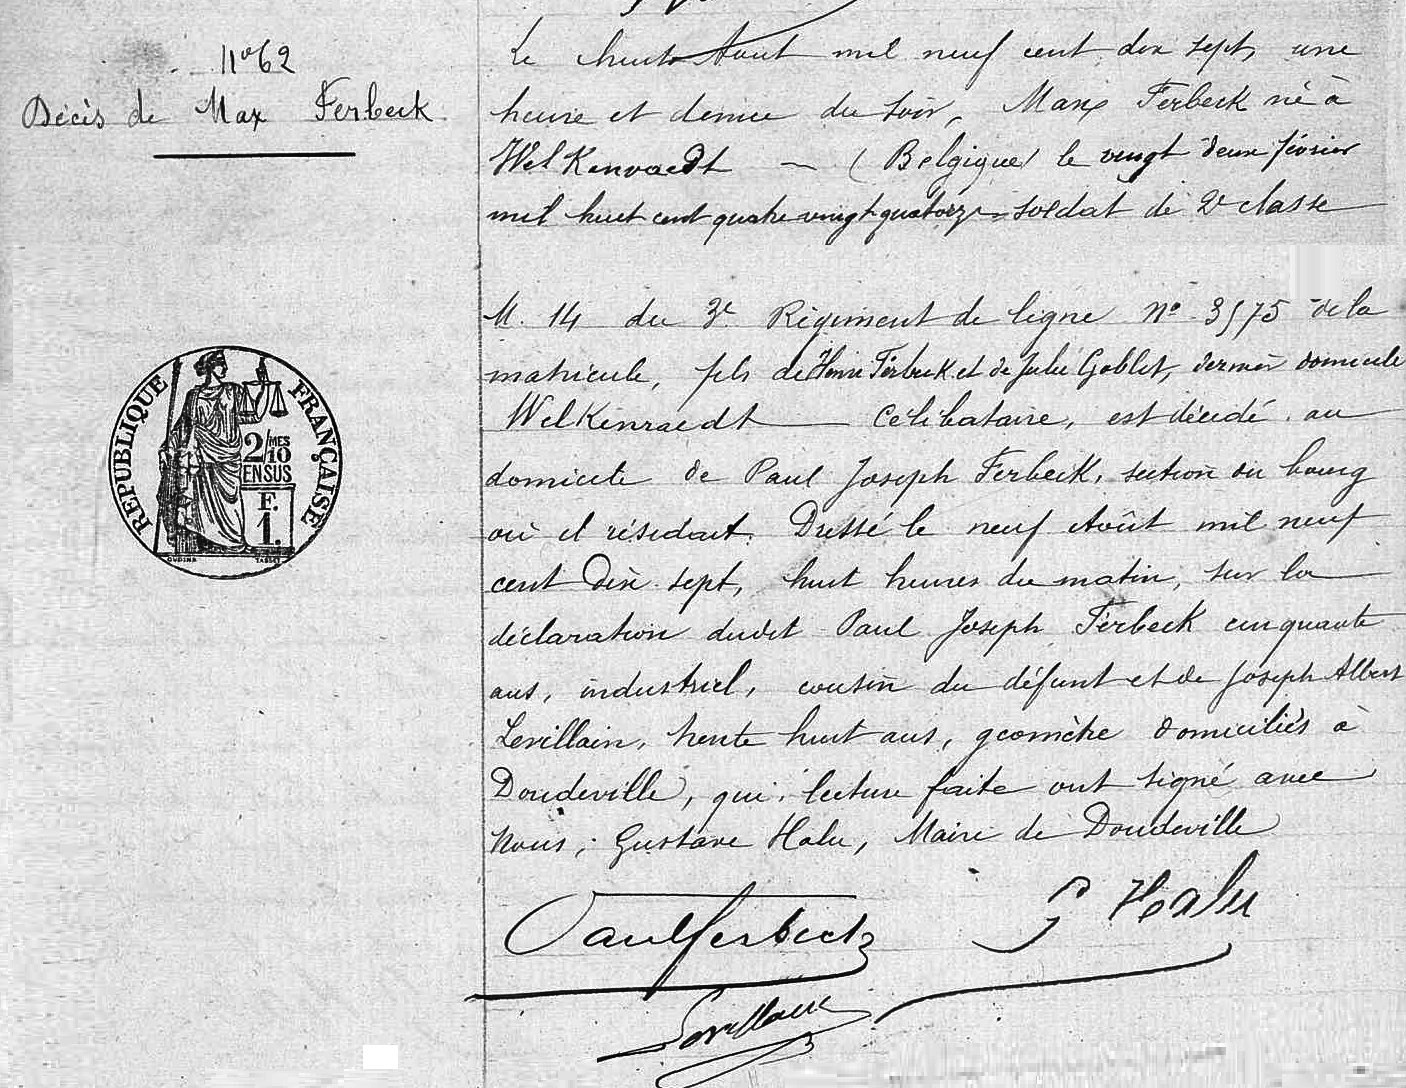 N° 62
Décès de Max Ferbeck
Le huit Août mil neuf cent dix sept, une
heure et demie du soir, Max Ferbeck né à
Welkenraedt (Belgique) le vingt deux février
mil huit cent quatre vingt quatorze, soldat de 2e classe
M. 14 du 3e Régiment de ligne N° 3575 de la
matricule, fils de Henri Ferbeck et de Julie Goblet, dernier domicile
Welkenraedt célibataire, est décédé au
domicile de Paul Joseph Ferbeck, section du bourg
où il résidait. Dressé le neuf Août mil neuf
cent dix sept, huit heures du matin, sur la
déclaration dudit Paul Joseph Ferbeck cinquante
ans, industriel, cousin du défunt et de Joseph Albert
Levillain, trente huit ans, géomètre domiciliés à
Doudeville, qui, lecture faite ont signé avec
Nous, Gustave Halu, Maire de Doudeville
Paul Ferbeck
G Halu
Levillain
RÉPUBLIQUE FRANÇAISE
2/MES
10
EN SUS
F.
1.